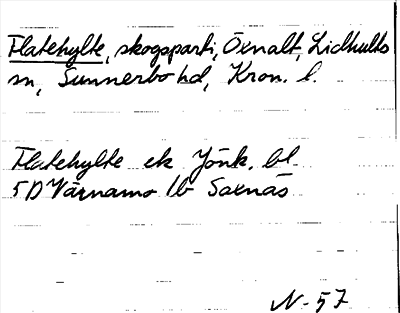 Flatehylte, skogsparti, Öxnalt, Lidhults
sn, Sunnerbo hd, Kron. l.
Flatehylte ek Jönk. bl.
5D Värnamo 1b Saxnäs
N-57